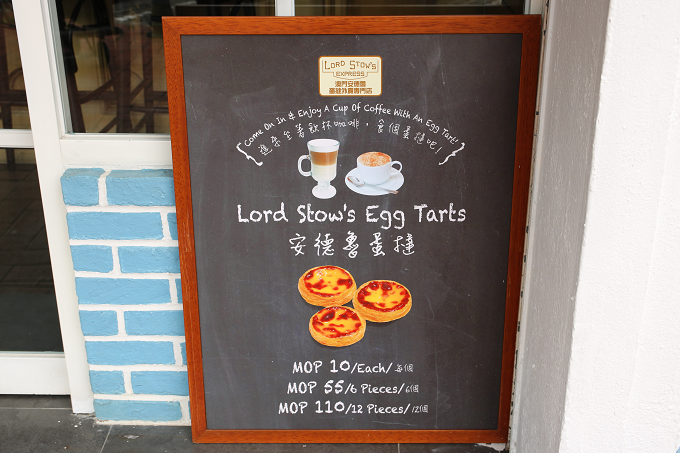 LORD STOW'S
EXPRESS
澳門安德魯
蛋撻外賣專門店
Come On In & Enjoy A Cup Of Coffee With An Egg Tart!
進來坐著飲杯咖啡，食個蛋撻吧！
Lord Stow's Egg Tarts
安德魯蛋撻
MOP 10/Each/每個
MOP 55/6 Pieces/6個
MOP 110/12 Pieces/12個